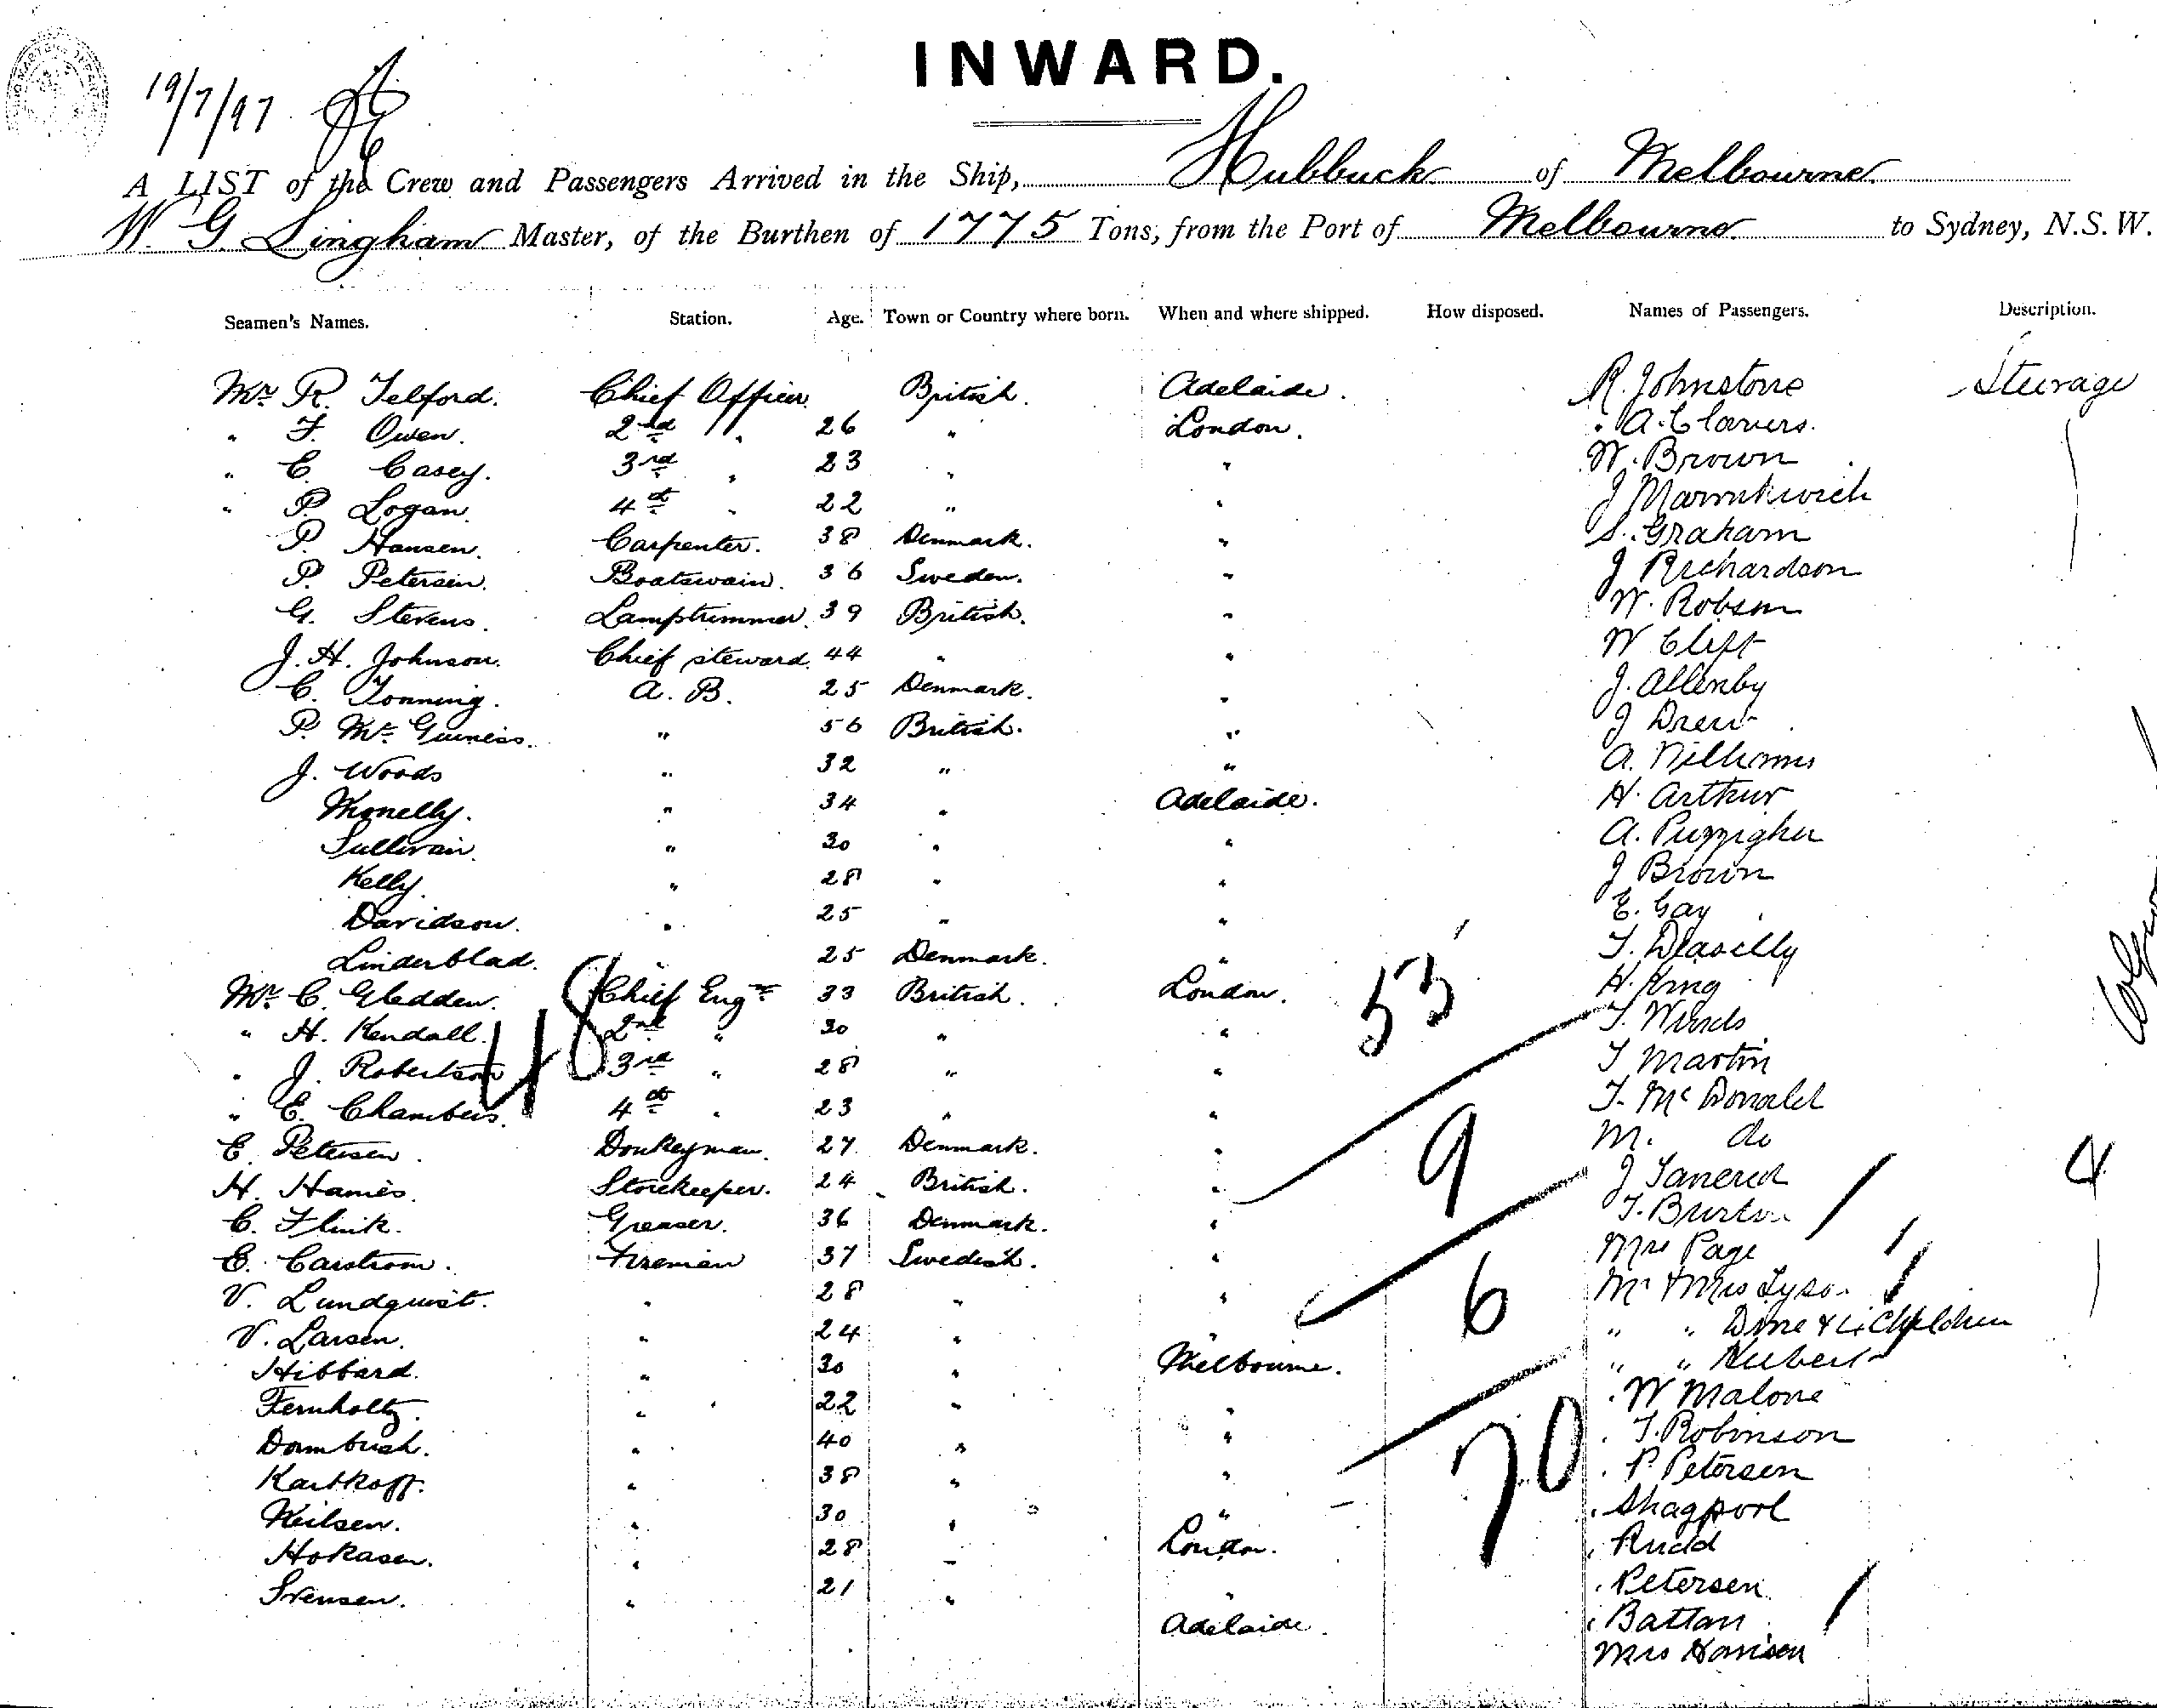 INWARD.
19/7/97
A LIST of the Crew and Passengers Arrived in the Ship, Hubbuck of Melbourne
W. G. Lingham Master, of the Burthen of 1775 Tons, from the Port of Melbourne to Sydney, N.S.W.
Seamen's Names. Station. Age. Town or Country where born. When and where shipped. How disposed. Names of Passengers. Description.
Mr R. Telford. Chief Officer British. Adelaide. R. Johnstone Steerage
" F. Owen. 2nd " 26 " London. A. Clavers.
" E Casey. 3rd " 23 " " W. Brown
" P. Logan. 4th " 22 " " J
P. Hansen. Carpenter. 38 Denmark. " S. Graham
P. Petersen. Boatswain. 36 Sweden. " J Richardson
G. Stevens. Lamptrimmer 39 British. " W. Robson
J. H. Johnson. Chief steward. 44 " " W Clift
C. Tonning. A. B. 25 Denmark. " J. Allenby
P. McGuiness. " 56 British. " J Drew
J. Woods " 32 " " A. Williams
Monelly. " 34 " Adelaide. H. Arthur
Sullivan. " 30 " " A.
Kelly. " 28 " " J Brown
Davidson. " 25 " " E. Gay
Linderblad. " 25 Denmark. " T.
Mr C. Gledden. Chief Engr 33 British. London. 53 H. King
" H. Kendall. 2nd " 30 " " T. Winds
" J. Robertson 48 3rd " 28 " " T Martin
" E. Chambers. 4th " 23 " " T. McDonald
E. Petersen. Donkeyman. 27 Denmark. " 9 M. do
H. Hames. Storekeeper. 24 British. " J Tancred 4
C. Flink. Greaser. 36 Denmark. " T. Burton
E. Carstrom. Fireman 37 Swedish. " Mrs Page
V. Lundquist. " 28 " " 6 Mr & Mrs Tyso
V. Larsen. " 24 " " " " Dine & 4 Children
Hibbard. " 30 " Melbourne. " " Hubert
Fernholtz. " 22 " " W Malone
Dombush. " 40 " " 70 T. Robinson
Karlkoff. " 38 " " P Petersen
Neilsen. " 30 " " Shagpool
Hokasen. " 28 " London. Rudd
Svensen. " 21 " " Petersen
Adelaide. Battan
Mrs Harrison